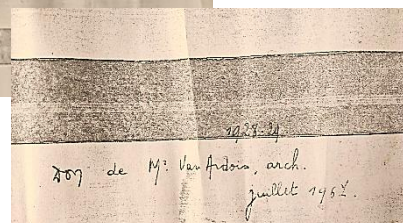 1928-29
Don de Mr Van Ardois, arch.
juillet 196